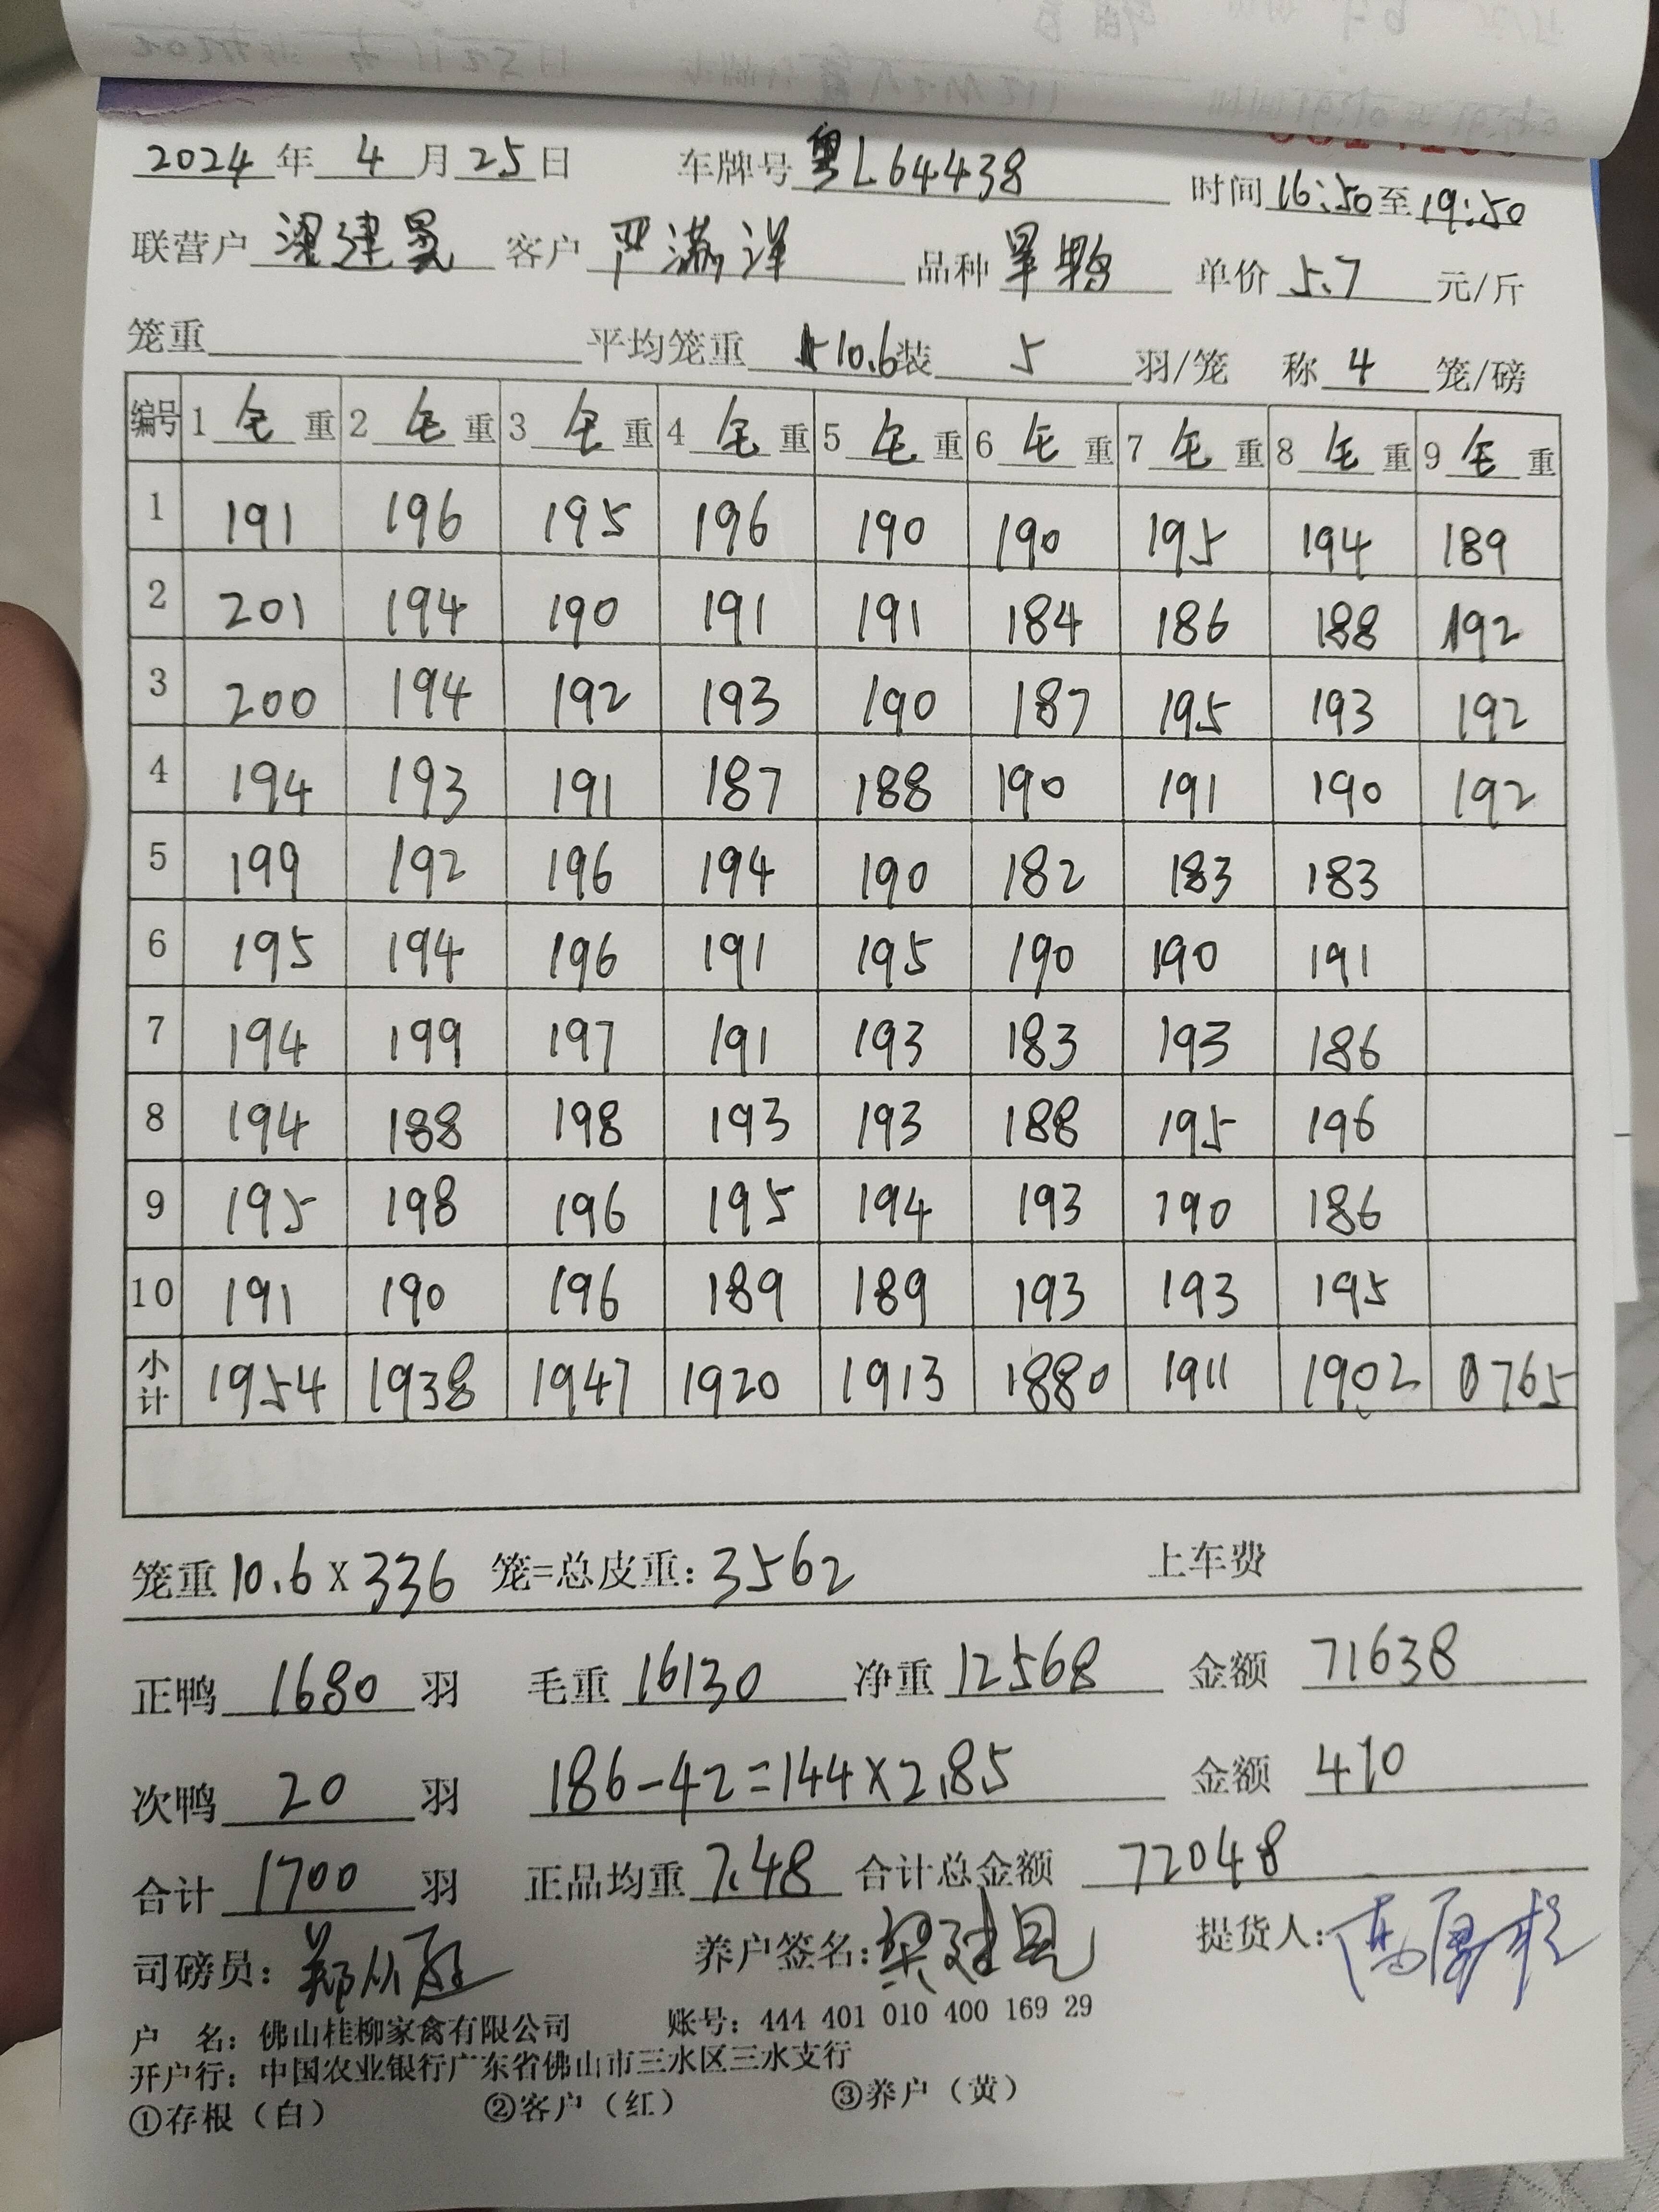 2024 年 4 月 25 日 车牌号 粤L64438 时间 16:50 至 19:50
联营户 梁建昆 客户 严满洋 品种 旱鸭 单价 5.7 元/斤
笼重 平均笼重 10.6 装 5 羽/笼 称 4 笼/磅
编号 1 毛 重 2 毛 重 3 毛 重 4 毛 重 5 毛 重 6 毛 重 7 毛 重 8 毛 重 9 毛 重
1 191 196 195 196 190 190 195 194 189
2 201 194 190 191 191 184 186 188 192
3 200 194 192 193 190 187 195 193 192
4 194 193 191 187 188 190 191 190 192
5 199 192 196 194 190 182 183 183
6 195 194 196 191 195 190 190 191
7 194 199 197 191 193 183 193 186
8 194 188 198 193 193 188 195 196
9 195 198 196 195 194 193 190 186
10 191 190 196 189 189 193 193 195
小计 1954 1938 1947 1920 1913 1880 1911 1902 0765
笼重 10.6 X 336 笼=总皮重: 3562 上车费
正鸭 1680 羽 毛重 16130 净重 12568 金额 71638
次鸭 20 羽 186-42=144X2.85 金额 410
合计 1700 羽 正品均重 7.48 合计总金额 72048
司磅员: 养户签名: 梁建昆 提货人:
户 名: 佛山桂柳家禽有限公司 账号: 444 401 010 400 169 29
开户行: 中国农业银行广东省佛山市三水区三水支行
①存根（白） ②客户（红） ③养户（黄）